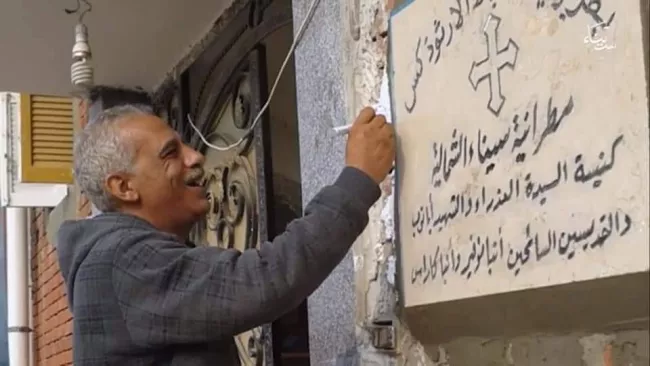 الارثوذكس
مطرانية سيناء الشمالية
كنيسة السيدة العذراء والشهيد أبانوب
والقديسين السائحين أنبا نوفير وأنبا كاراس